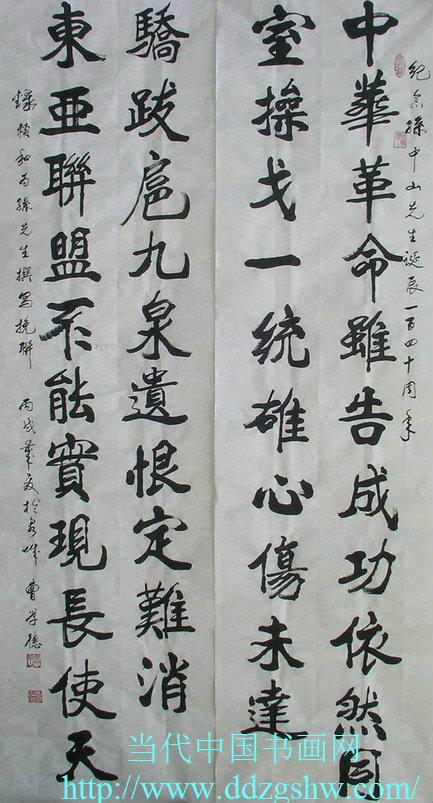 紀念孫中山先生誕辰一百四十周年
中華革命雖告成功依然同
室操戈一统雄心傷未達
東亞聯盟不能實現長使天
驕跋扈九泉遺恨定難消
錄賴和为孫先生撰寫挽聯 丙戌夏於泉城 曹学德
当代中国书画网
http://www.ddzgshw.com/